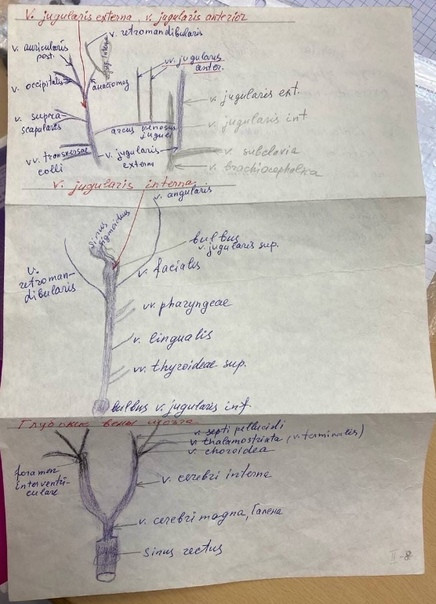 V. jugularis externa, v. jugularis anterior
v. retromandibularis
v. auricularis
post.
vv. jugularis
anter.
v. occipitalis
anastomos
v. jugularis ext.
v. supra-
scapularis
arcus venosus
juguli
v. jugularis int
vv. transversae
colli
v. jugularis
externa
v. subclavia
v. brachiocephalica
V. jugularis interna
v. angularis
sinus
sigmoideus
bulbus
v. jugularis sup.
v. facialis
v.
retroman-
dibularis
vv. pharyngeae
v. lingualis
vv. thyroideae sup.
bulbus v. jugularis inf
Глубокие вены мозга
v. septi pellucidi
v. thalamostriata (v. terminalis)
v. choroidea
foramen
interventri-
culare
v. cerebri interna
v. cerebri magna, Галена
Sinus rectus
II-8